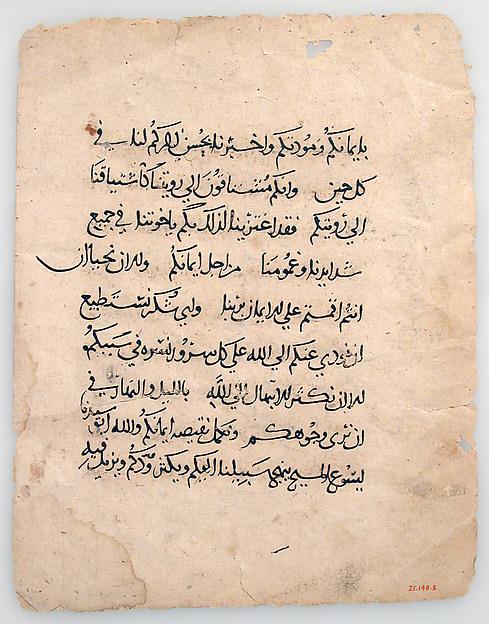 بايمانكم ومودتكم واخبرنا بحسن ذكركم لنا في
كل حين وانكم مشتاقون الي رويتنا كاشتياقنا
الي رؤيتكم فقد اعتزينا لذلك بكم ياخوتنا في جميع
شدايدنا وغمومنا من اجل ايمانكم والان نحيا ان
انتم اقمتم علي الايمان بربنا واي شكر نستطيع
ان نودي عنكم الي الله علي كل سرور نسره في سببكم
الا ان نكثر الابتهال الي الله بالليل والنهار في
ان نري وجوهكم ونكمل نقيصه ايمانكم والله
يسوع المسيح ينهج سبيلنا اليكم ويكثر ودكم ويزيد فيه
21.148.5